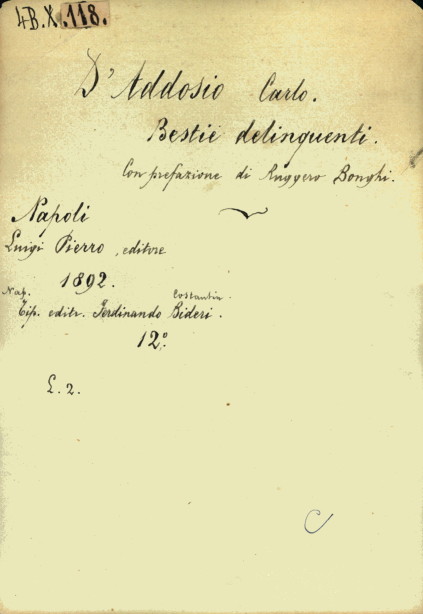 4B.X.118.
D'Addosio Carlo.
Bestie delinquenti.
Con prefazione di Ruggero Bonghi.
Napoli
Luigi Pierro, editore
1892.
Nap. Costantin.
Tip. editr. Ferdinando Bideri.
12º
L. 2.
C